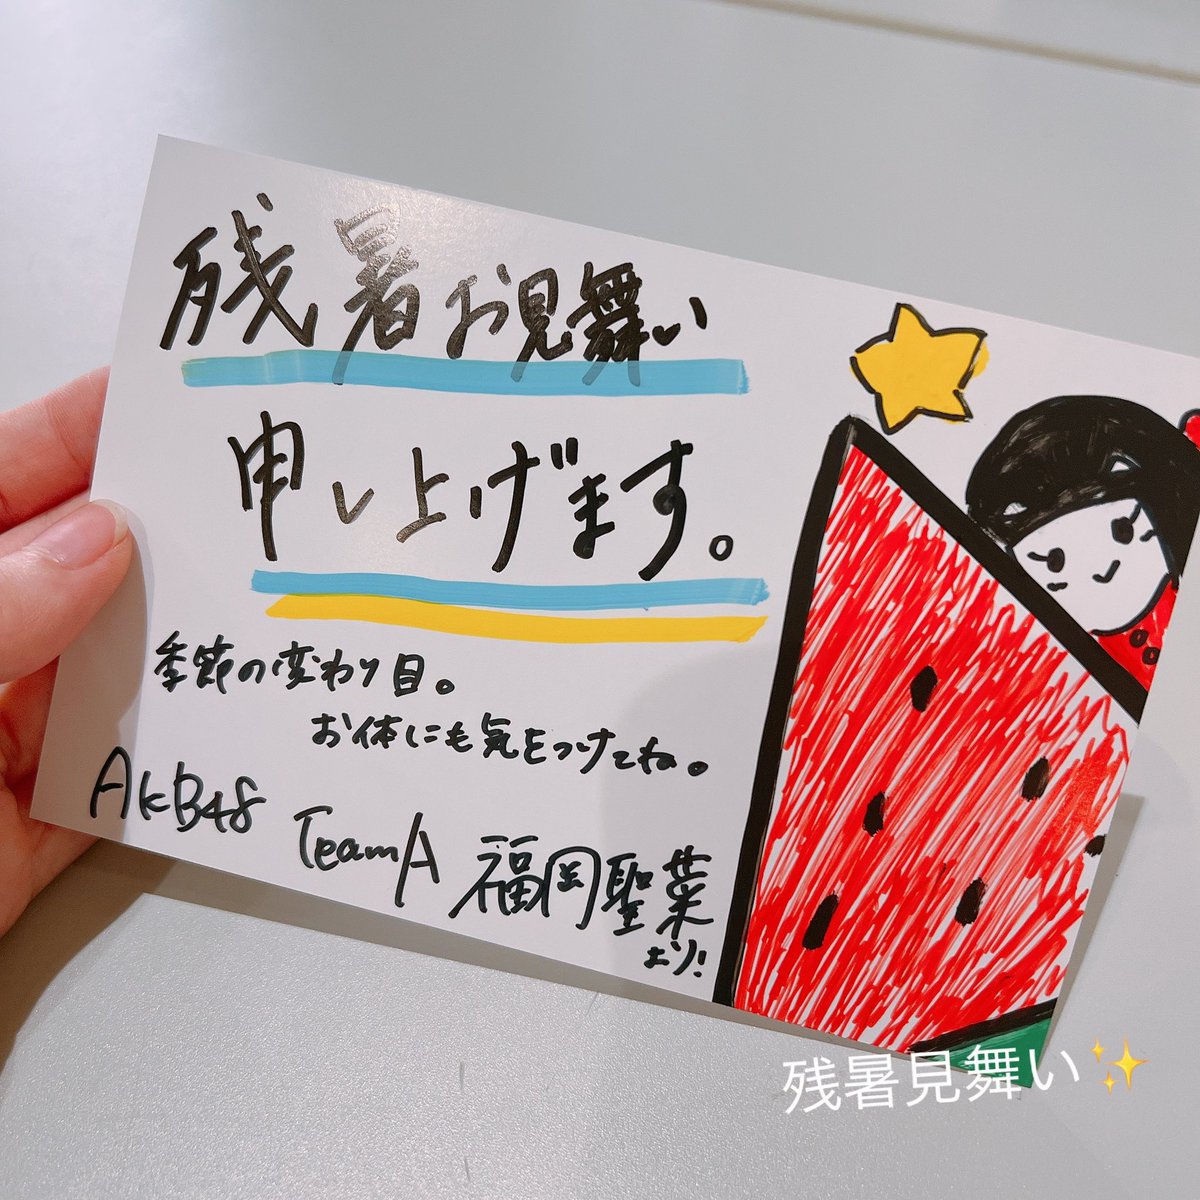 残暑お見舞い
申し上げます。
季節の変わり目。
お体にも気をつけてね。
AKB48 TeamA 福岡聖菜
より!
残暑見舞い✨